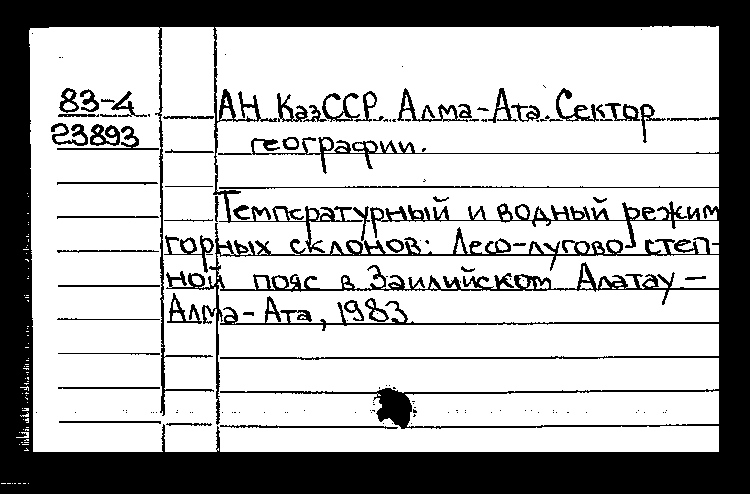 83-4
23893
АН КазССР. Алма-Ата. Сектор
географии.
Температурный и водный режим
горных склонов: Лесо-лугово-степ-
ной пояс в Заилийском Алатау -
Алма-Ата, 1983.